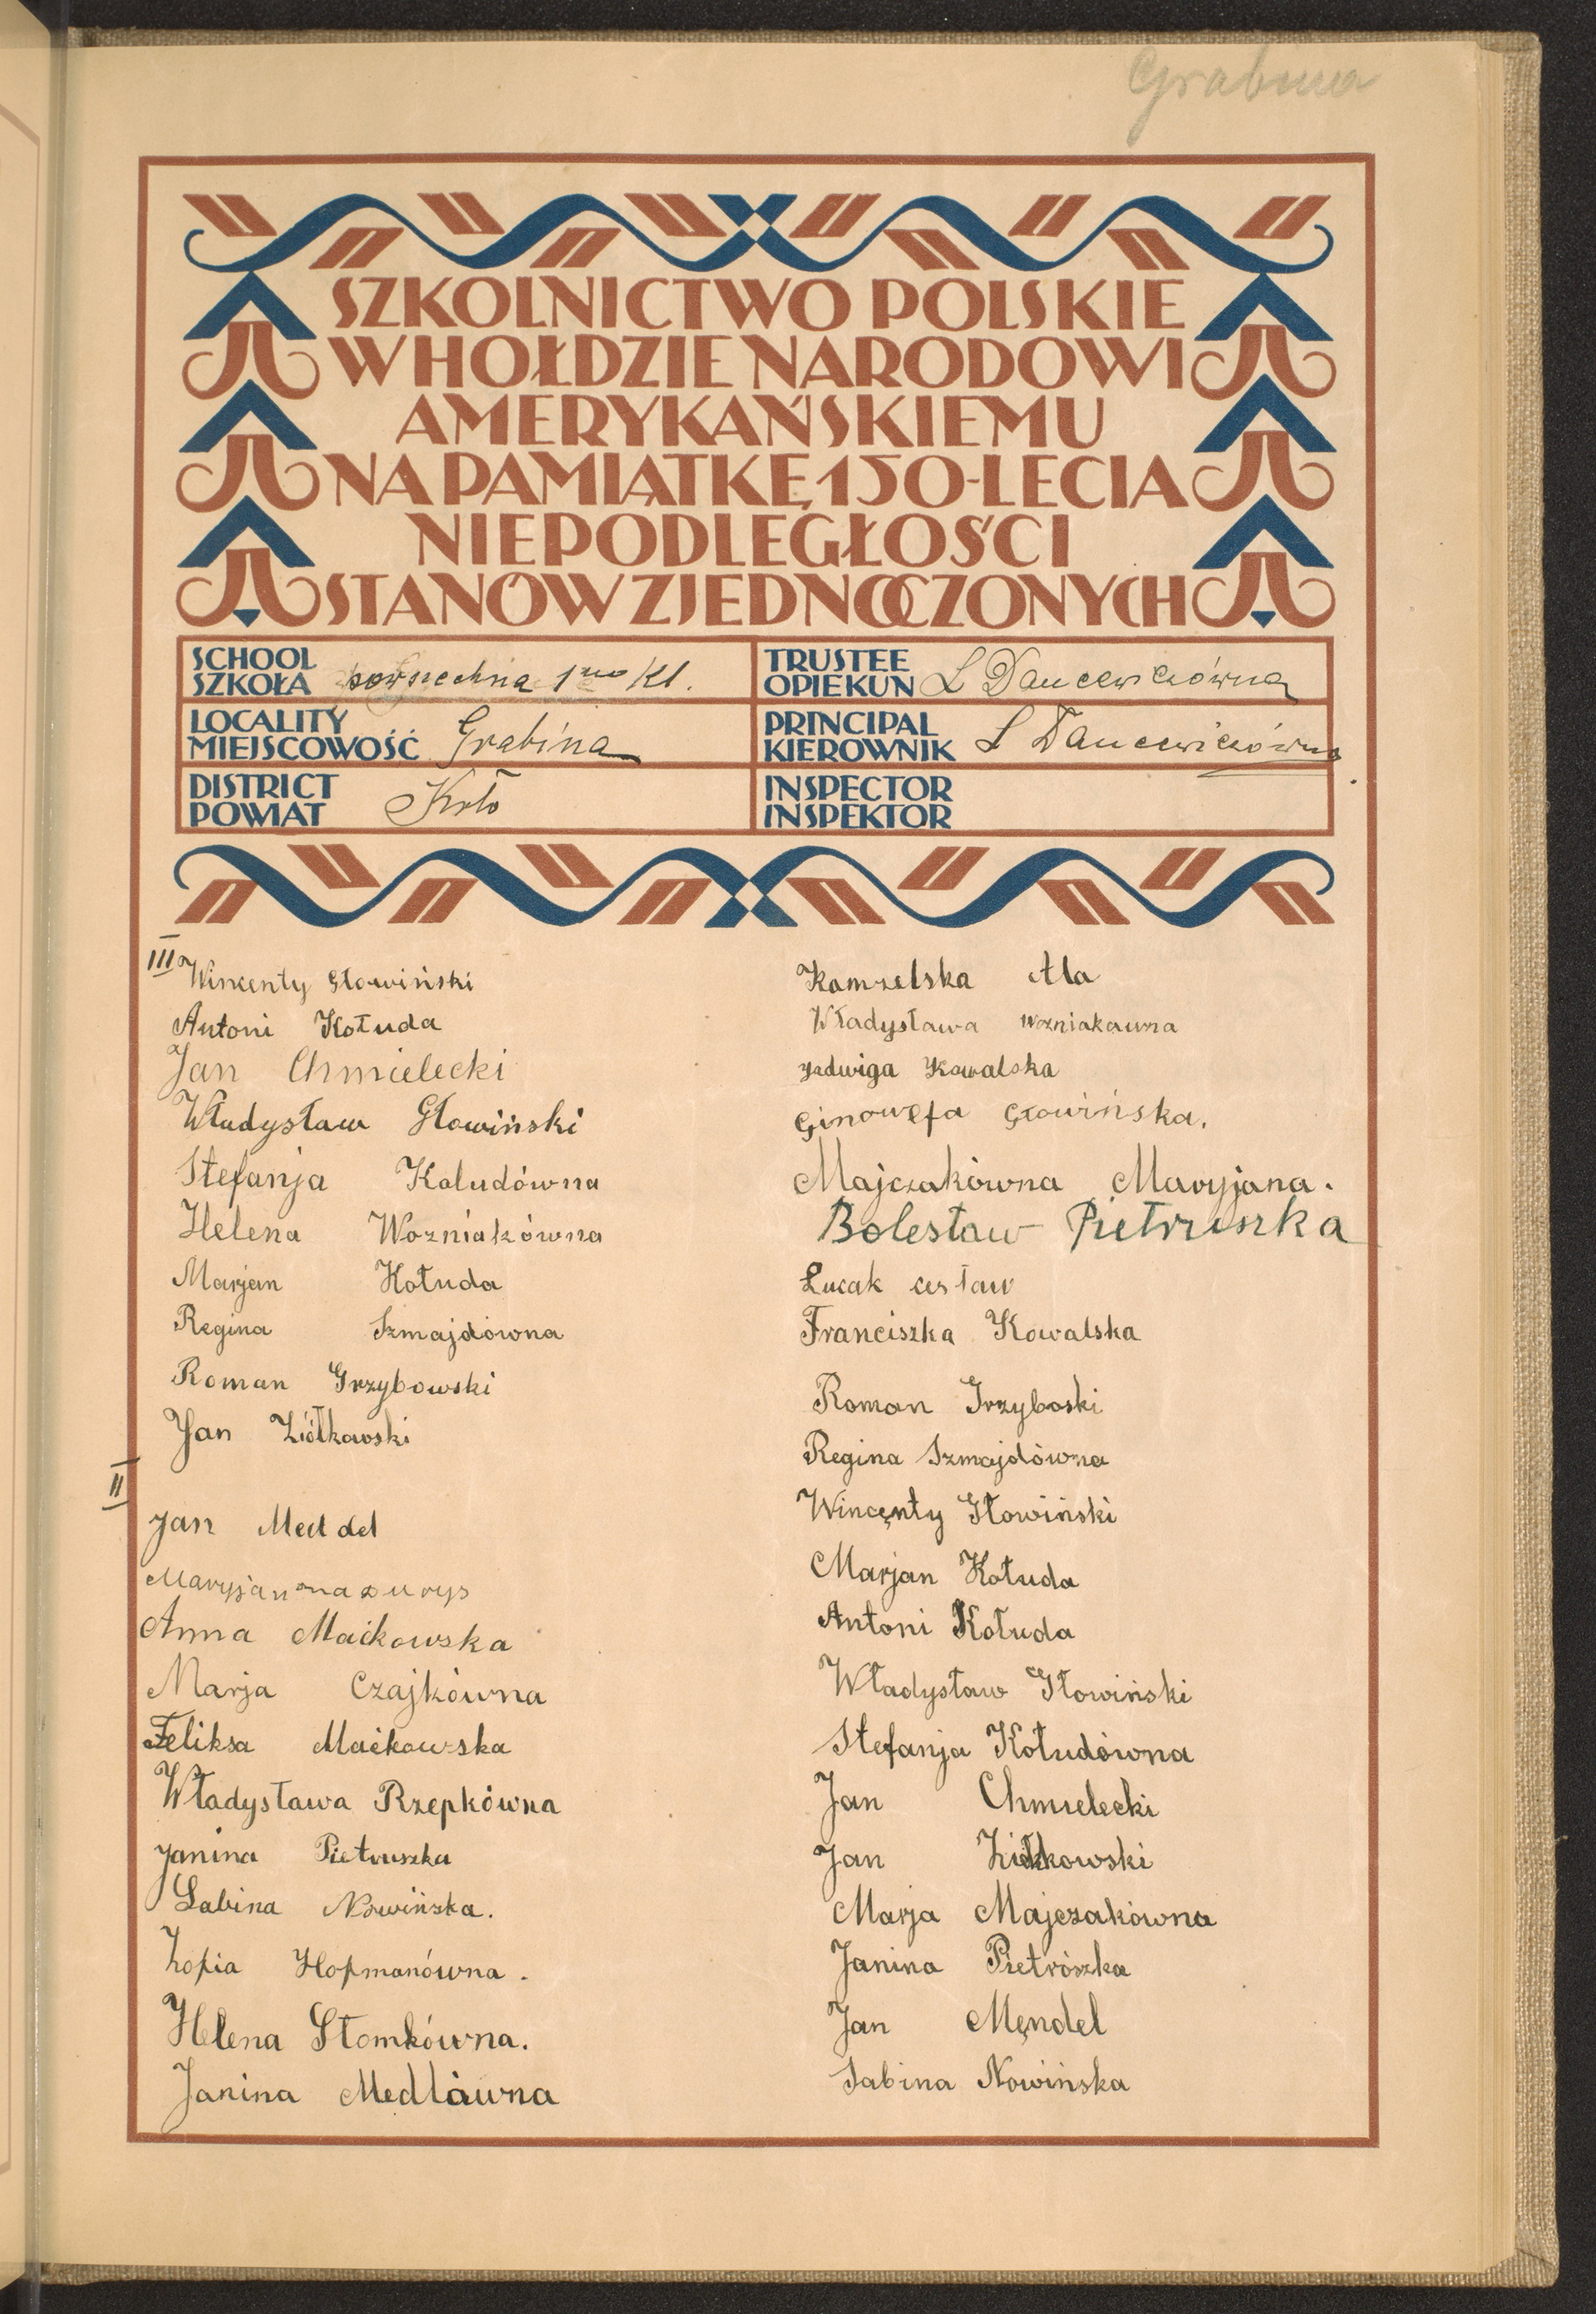 Grabina
SZKOLNICTWO POLSKIE
W HOŁDZIE NARODOWI
AMERYKAŃSKIEMU
NA PAMIĄTKĘ 150-LECIA
NIEPODLEGŁOŚCI
STANÓW ZJEDNOCZONYCH
SCHOOL
SZKOŁA powszechna 1no Kl.
TRUSTEE
OPIEKUN L Dancewiczówna
LOCALITY
MIEJSCOWOŚĆ Grabina
PRINCIPAL
KIEROWNIK L Dancewiczówna
DISTRICT
POWIAT Koło
INSPECTOR
INSPEKTOR
III
Wincenty Głowiński
Antoni Kołuda
Jan Chmielecki
Władysław Głowiński
Stefanja Kaludówna
Helena Wozniakówna
Marjan Kołuda
Regina Szmajdówna
Roman Grzybowski
Jan Ziółkowski
II
Jan
Anna Maćkowska
Marja Czajkówna
Feliksa Maćkowska
Władysława Rzepkówna
Janina Pietruszka
Sabina Nowińska.
Zofia Hofmanówna.
Helena Słomkówna.
Janina Medlówna
Kamzelska Ala
Władysława Wozniakawna
Jadwiga Kowalska
Ginowefa Głowińska.
Majczakówna Maryjana.
Bolesław Pietruszka
Łucak cesław
Franciszka Kowalska
Roman Grzyboski
Regina Szmajdówna
Wincęnty Głowiński
Marjan Kołuda
Antoni Kołuda
Władysław Głowiński
Stefanja Kołudówna
Jan Chmielecki
Jan Ziółkowski
Marja Majczakówna
Janina Pietrószka
Jan Męndel
Sabina Nowińska